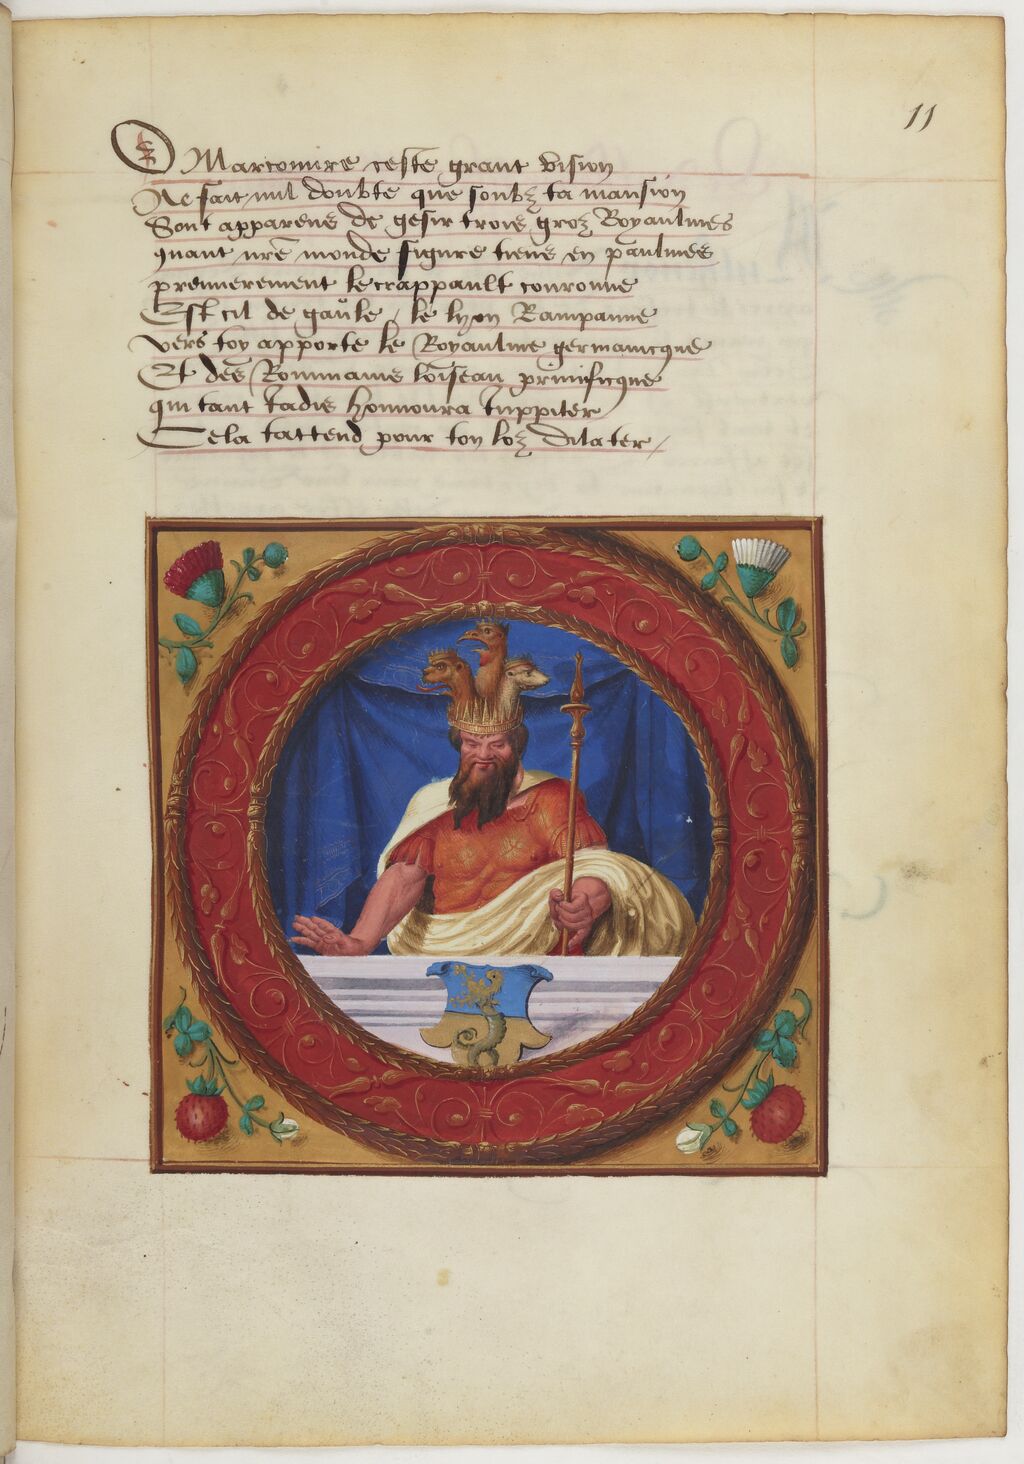 11
O Marcomire ceste grant vision
Ne fait nul doubte que soubz ta mansion
Sont apparens de gesir trois groz Royaulmes
quant nre monde figure tiens en paulmes
premierement le crappault couronne
Est cil de gaule / le lyon Rampanne
vers toy apporte le Royaulme germanicque
Et des Rommains loiseau prinificque
qui tant Jadis honnoura Juppiter
Cela tattend pour ton loz dilater /